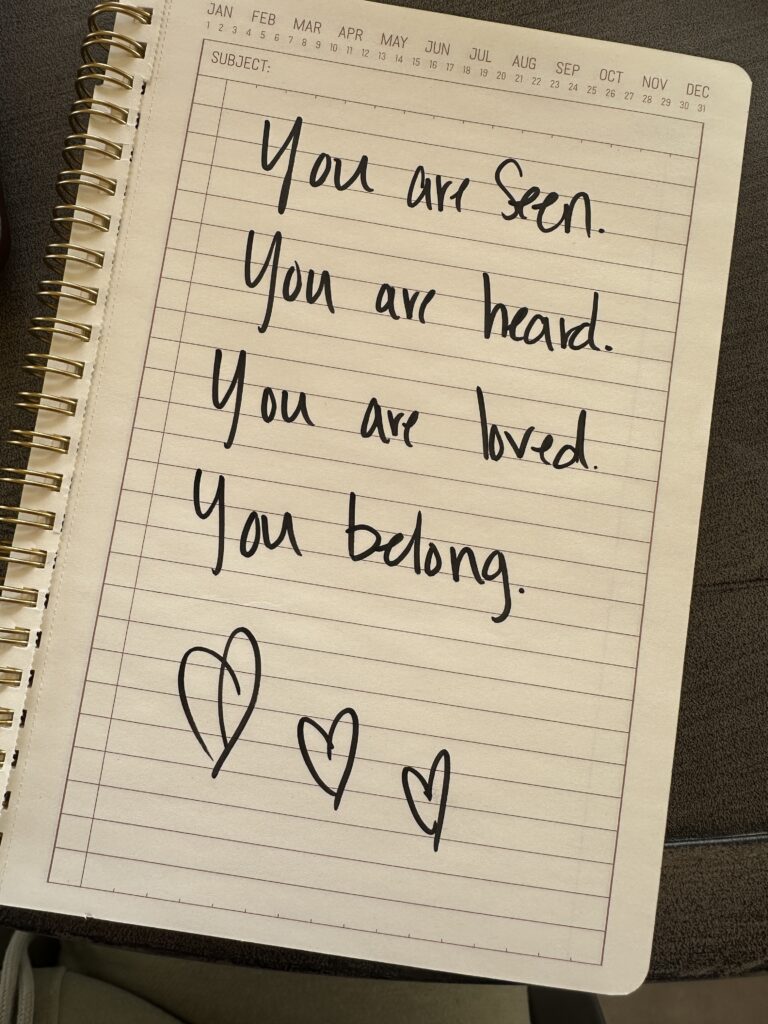 JAN FEB MAR APR MAY JUN JUL AUG SEP OCT NOV DEC
1 2 3 4 5 6 7 8 9 10 11 12 13 14 15 16 17 18 19 20 21 22 23 24 25 26 27 28 29 30 31
SUBJECT:
You are Seen.
You are heard.
You are loved.
You belong.